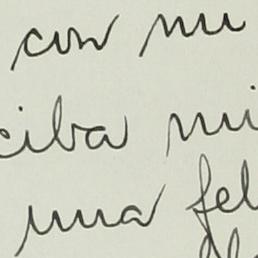 con mi
ciba mi
una fel